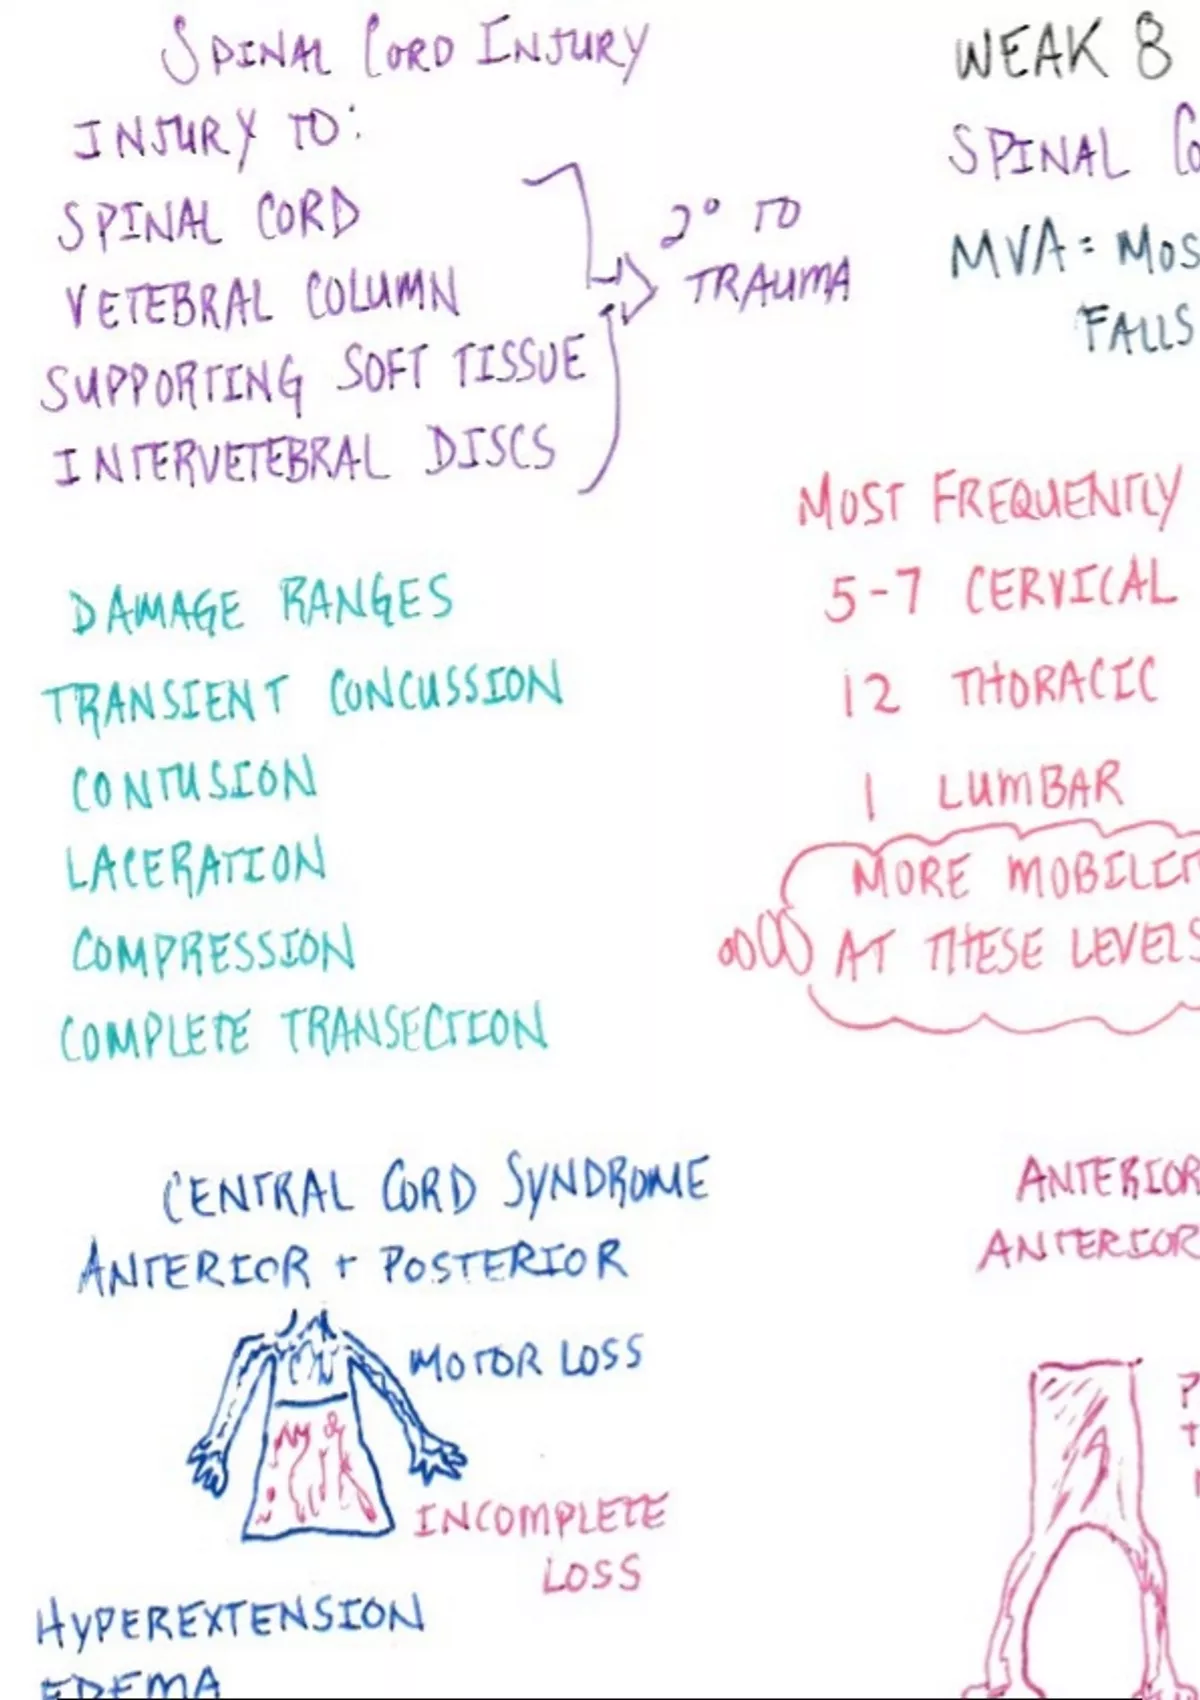 SPINAL CORD INJURY
INJURY TO:
SPINAL CORD
VETEBRAL COLUMN
SUPPORTING SOFT TISSUE
INTERVETEBRAL DISCS
2° TO
TRAUMA
DAMAGE RANGES
TRANSIENT CONCUSSION
CONTUSION
LACERATION
COMPRESSION
COMPLETE TRANSECTION
CENTRAL CORD SYNDROME
ANTERIOR + POSTERIOR
MOTOR LOSS
INCOMPLETE
LOSS
HYPEREXTENSION
EDEMA
WEAK 8
SPINAL Co
MVA = MOS
FALLS
MOST FREQUENTLY
5-7 CERVICAL
12 THORACIC
1 LUMBAR
MORE MOBILIT
AT THESE LEVELS
ANTERIOR
ANTERIOR